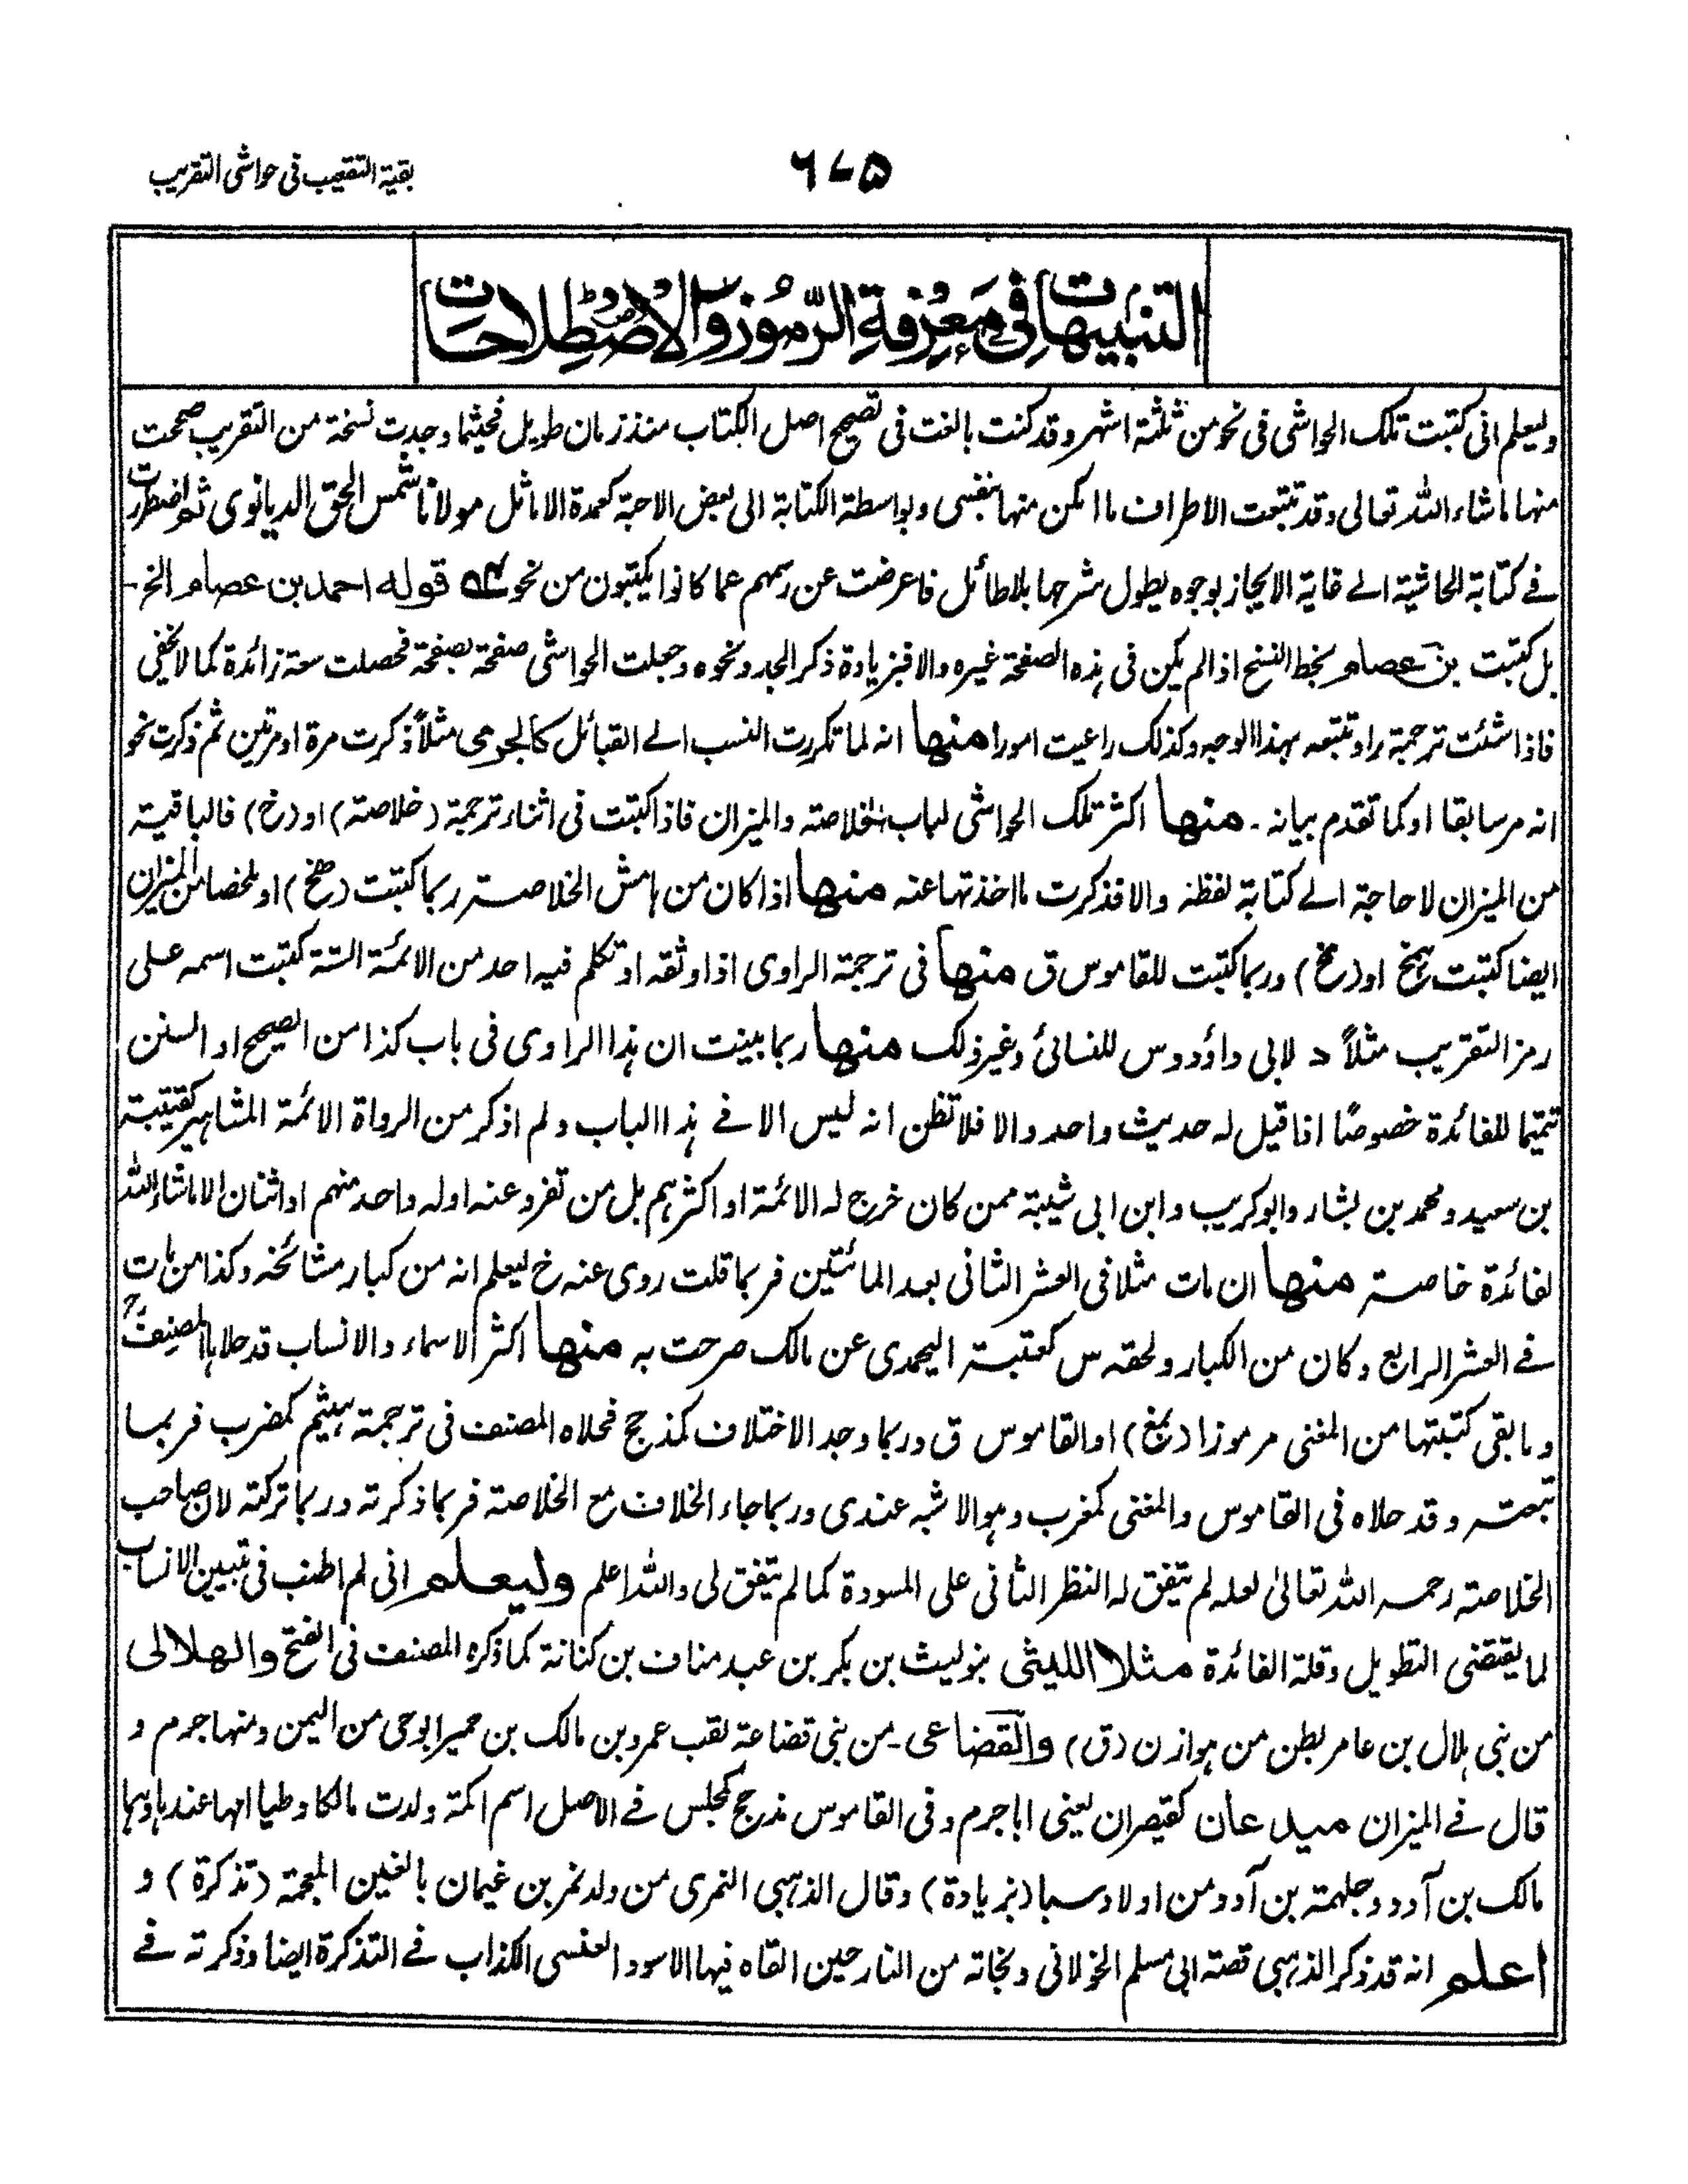 بقية التقعيب فى حواشى التقريب
٦٧٥
التنبيهات فى معرفة الرموز والاصطلاحات
وليعلم انى كتبت تلك الحواشى فى نحو من ثلثة اشهر وقد كنت بالغت فى تصحيح اصل الكتاب منذ زمان طويل فحيثما وجدت نسخة من التقريب صححت
منها ماشاء الله تعالى وقد تتبعت الاطراف ما امكن منها بنفسى وبواسطة الكتابة الى بعض الاحبة كعمدة الاماثل مولانا شمس الحق الديانوى ثم اضطررت
فے كتابة الحاشية الے غاية الايجاز بوجوه يطول شرحها بلاطائل فاعرضت عن رسمهم عما كانوا يكتبون من نحو قوله احمد بن عصام الخ-
بل كتبت بن عصام بخط النسخ اذ الم يكن فى هذه الصفحة غيره والا فبزيادة ذكر الجد ونحوه وجعلت الحواشى صفحة بصفحة فحصلت سعة زائدة كما لايخفى
فاذا شئت ترجمة راو تتبعه بهذا الوجه وكذلك راعيت امورا منها انه لما تكررت النسب الے القبائل كالجرمى مثلاً ذكرت مرة او مرتين ثم ذكرت نحو
انه مر سابقا او كما تقدم بيانه ـ منها اكثر تلك الحواشى لباب الخلاصة والميزان فاذا كتبت فى اثناء ترجمة (خلاصة) او (خ) فالباقية
من الميزان لاحاجة الے كتابة لفظه والا فذكرت ما اخذتها عنه منها اذا كان من هامش الخلاصة ربما كتبت (هخ) او ملخصا من الميزان
ايضا كتبت او وربما كتبت للقاموس ق منها فى ترجمة الراوى اذا وثقه او تكلم فيه احد من الائمة الستة كتبت اسمه على
رمز التقريب مثلاً د لابى داؤد وس للنسائى وغير ذلك منها ربما بينت ان هذا الراوى فى باب كذا من الصحيح او السنن
تتميما للفائدة خصوصًا اذا قيل له حديث واحد والا فلا تظن انه ليس الا فے هذا الباب ولم اذكر من الرواة الائمة المشاهير كقتيبة
بن سعيد ومحمد بن بشار وابو كريب وابن ابى شيبة ممن كان خرج له الائمة او اكثرهم بل من تفرد عنه اوله واحد منهم او اثنان الا ماشاء الله
لفائدة خاصة منها ان مات مثلا فى العشر الثانى بعد المائتين فربما قلت روى عنه خ ليعلم انه من كبار مشائخه وكذا من مات
فے العشر الرابع وكان من الكبار ولحقه س كعتبة اليحمدى عن مالك صرحت به منها اكثر الاسماء والانساب قد حلاها المصنف
وما بقى كتبتها من المغنى مرموزا (مغ) او القاموس ق وربما وجد الاختلاف كمذحج فحلاه المصنف فى ترجمة هيثم كمضرب فربما
تبعته وقد حلاه فى القاموس والمغنى كمغرب وهو الاشبه عندى وربما جاء الخلاف مع الخلاصة فربما ذكرته وربما تركته لان صاحب
الخلاصة رحمه الله تعالىٰ لعله لم يتفق له النظر الثانى على المسودة كما لم يتفق لى والله اعلم وليعلم انى لم اطنب فى تبيين الانساب
لما يقتضى التطويل وقلة الفائدة مثلا الليثى بنو ليث بن بكر بن عبد مناف بن كنانة كما ذكره المصنف فى الفتح والهلالى
من بنى هلال بن عامر بطن من هوازن (ق) والقضاعى ـ من بنى قضاعة لقب عمرو بن مالك بن حمير ابوحى من اليمن ومنها جرم و
قال فے الميزان ميدعان كقيصران يعنى اباجرم وفى القاموس مذحج كمجلس فے الاصل اسم اكمة ولدت مالكا وطيا امها عندها وهما
مالك بن آدد وجلهمة بن آدد ومن اولاد سبا (بزيادة) وقال الذهبى النمرى من ولد نمر بن غيمان بالغين المعجمة (تذكرة) و
اعلم انه قد ذكر الذهبى قصة ابى مسلم الخولانى ونجاته من النار حين القاه فيها الاسود العنسى الكذاب فے التذكرة ايضا وذكرته فے